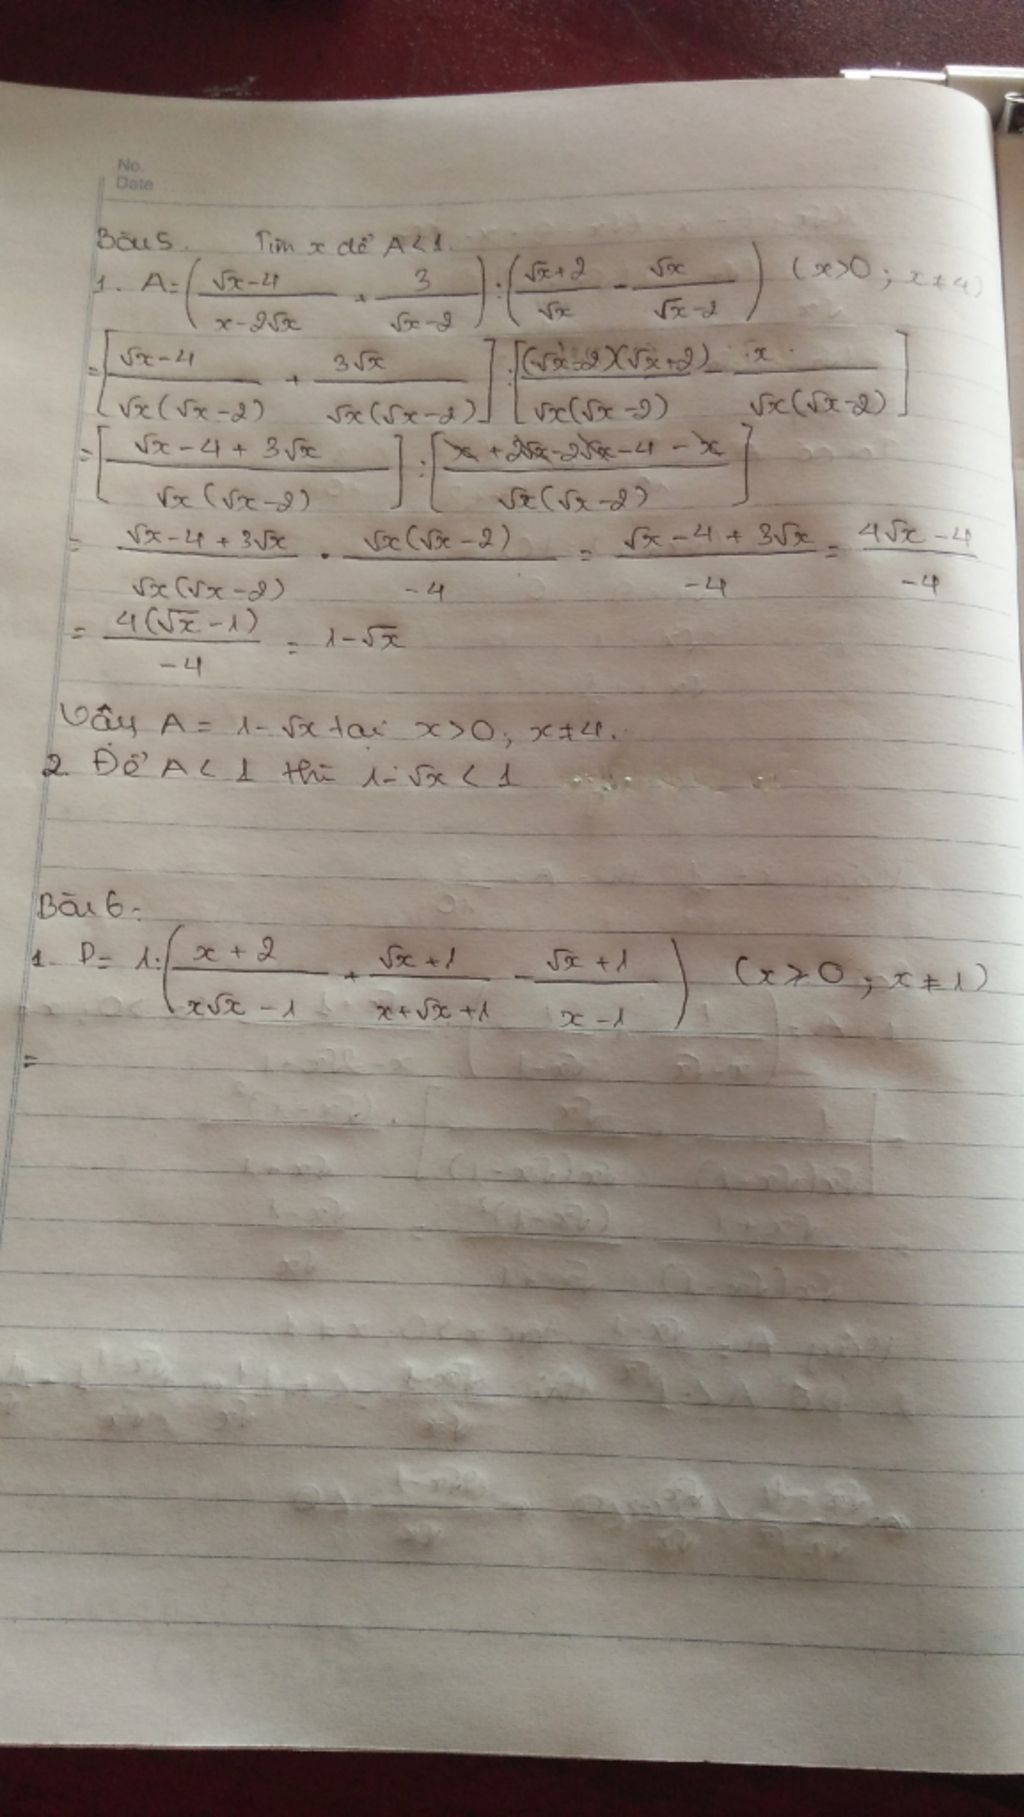 No.
Date
Bài 5. Tìm x để A < 1.
1. A = ( (√x - 4)/(x - 2√x) + 3/(√x - 2) ) : ( (√x + 2)/√x - √x/(√x - 2) ) (x > 0 ; x ≠ 4)
= [ (√x - 4)/(√x(√x - 2)) + 3√x/(√x(√x - 2)) ] : [ (√x - 2)(√x + 2)/(√x(√x - 2)) - x/(√x(√x - 2)) ]
= [ (√x - 4 + 3√x)/(√x(√x - 2)) ] : [ (x + 2√x - 2√x - 4 - x)/(√x(√x - 2)) ]
= (√x - 4 + 3√x)/(√x(√x - 2)) . √x(√x - 2)/-4 = (√x - 4 + 3√x)/-4 = (4√x - 4)/-4
= 4(√x - 1)/-4 = 1 - √x
Vậy A = 1 - √x tại x > 0, x ≠ 4.
2. Để A < 1 thì 1 - √x < 1
Bài 6:
1. P = 1 : ( (x + 2)/(x√x - 1) + (√x + 1)/(x + √x + 1) - (√x + 1)/(x - 1) ) (x ≥ 0 ; x ≠ 1)
=